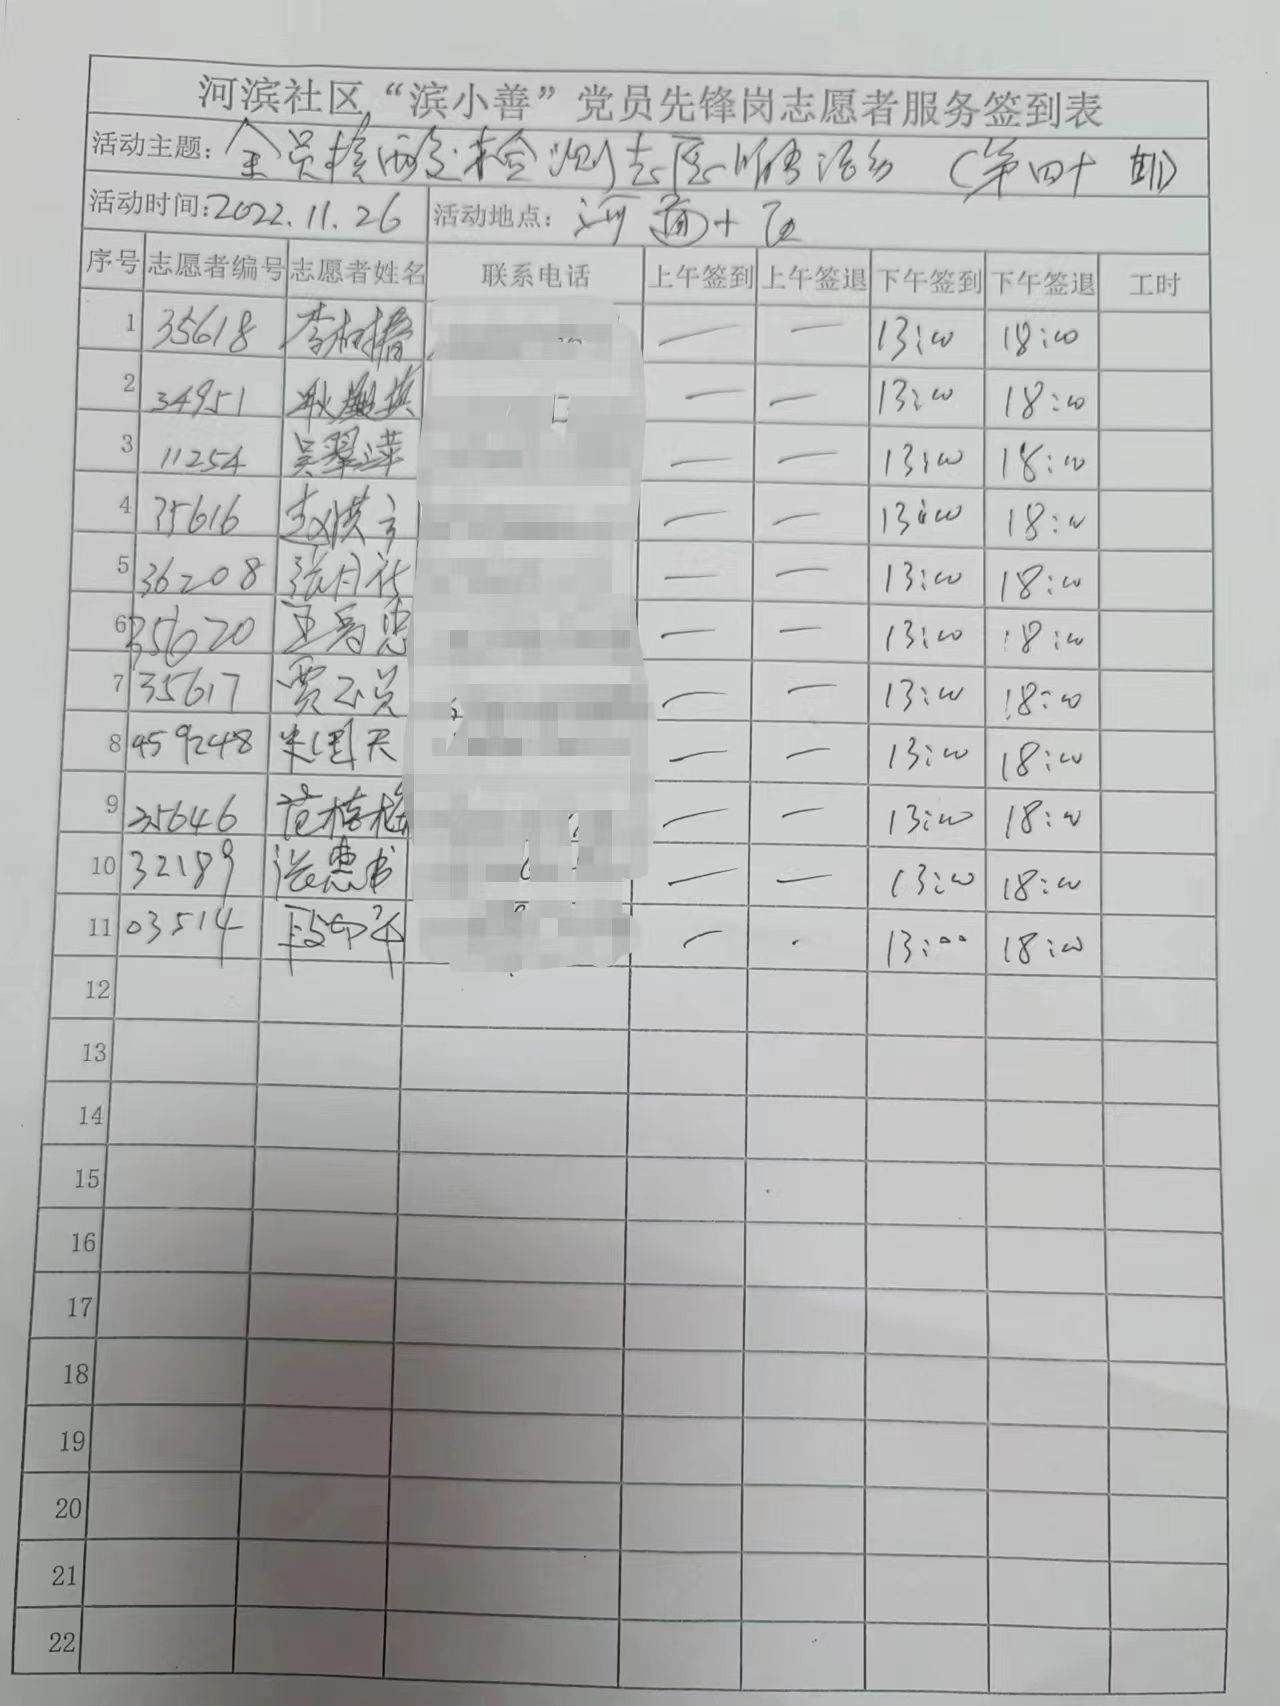 河滨社区“滨小善”党员先锋岗志愿者服务签到表
活动主题：全员核酸检测志愿服务活动（第四十期）
活动时间：2022.11.26 活动地点：河
序号 志愿者编号 志愿者姓名 联系电话 上午签到 上午签退 下午签到 下午签退 工时
1 35618 李 — — 13:00 18:00
2 34951 — — 13:00 18:00
3 11254 吴翠萍 — — 13:00 18:00
4 35616 赵 — — 13:00 18:00
5 36208 张月 — — 13:00 18:00
6 35620 王 惠 — — 13:00 18:00
7 35617 贾玉 — — 13:00 18:00
8 959248 朱国天 — — 13:00 18:00
9 35646 范桂梅 — — 13:00 18:00
10 32189 惠 — — 13:00 18:00
11 03514 段 — 13:00 18:00
12
13
14
15
16
17
18
19
20
21
22